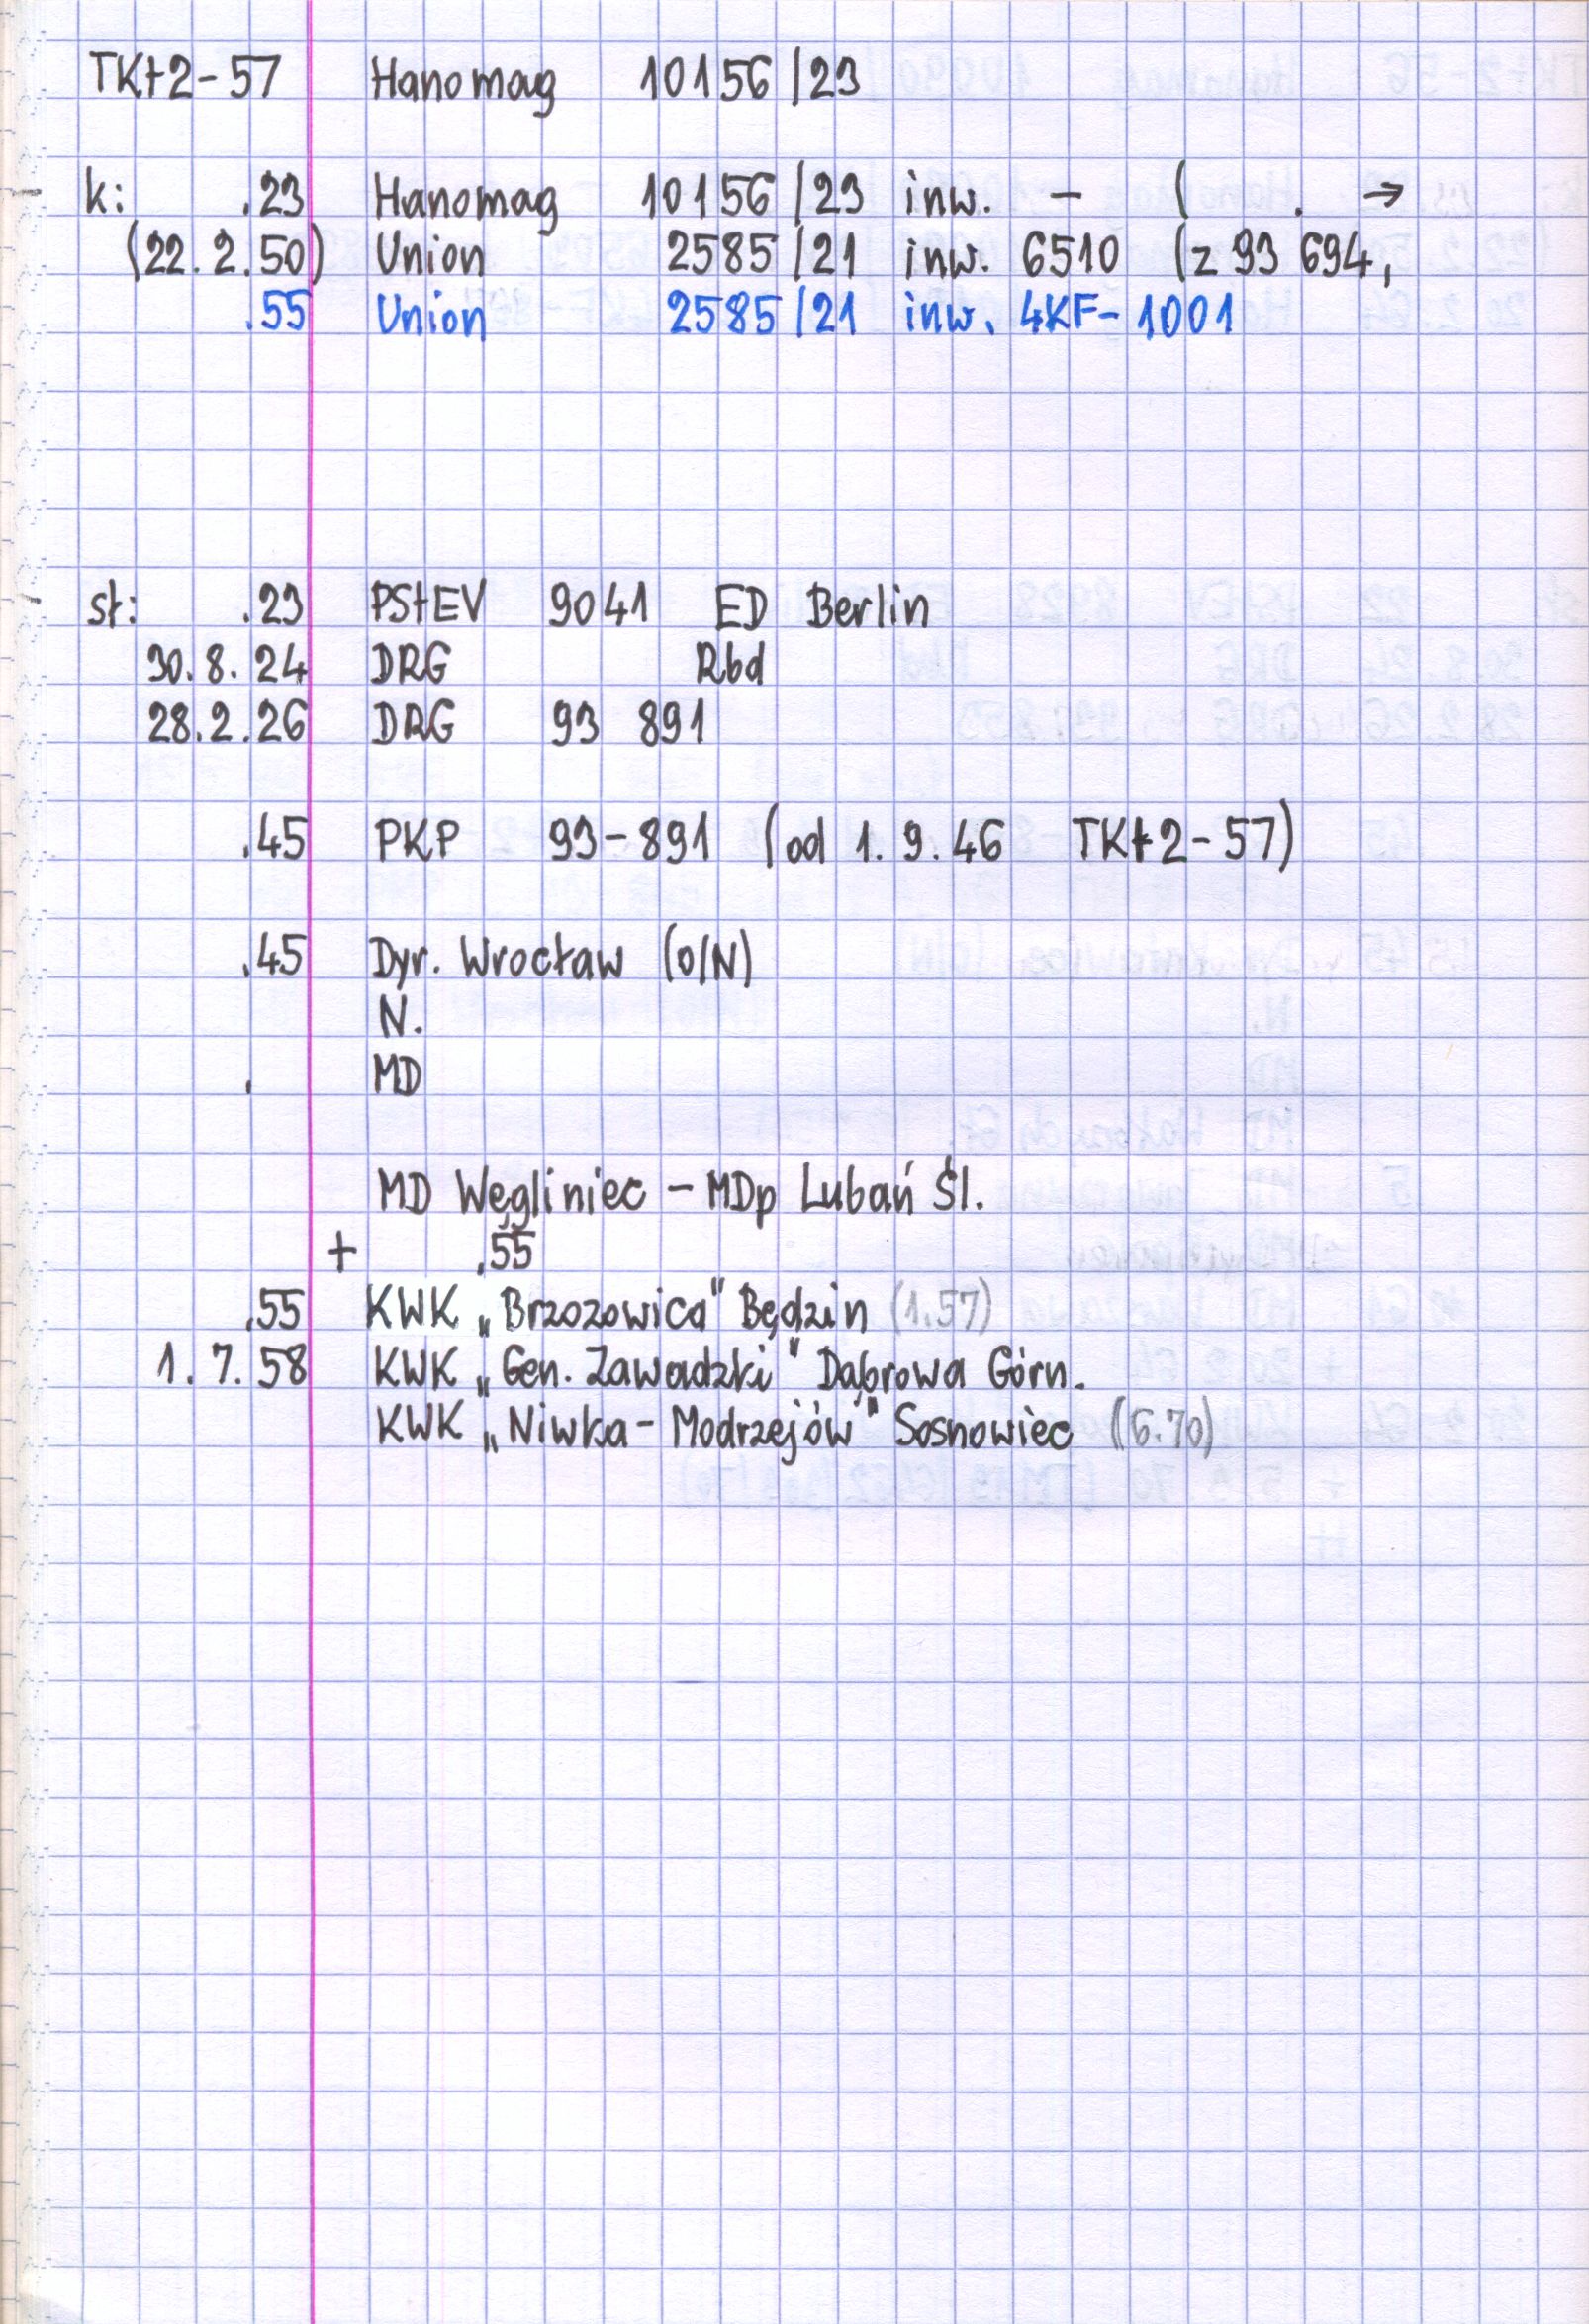 TKt2-57 Hanomag 10156/23
k: .23 Hanomag 10156/23 inw. – ( . →
(22.2.50) Union 2585/21 inw. 6510 (z 93 694,
.55 Union 2585/21 inw. 4KF-1001
st: .23 PStEV 9041 ED Berlin
30.8.24 DRG Rbd
28.2.26 DRG 93 891
.45 PKP 93-891 (od 1.9.46 TKt2-57)
.45 Dyr. Wrocław (O/N)
N.
. MD
MD Węgliniec – MDp Lubań Śl.
+ .55
.55 KWK „Brzozowica" Będzin (1.57)
1.7.58 KWK „Gen. Zawadzki" Dąbrowa Górn.
KWK „Niwka-Modrzejów" Sosnowiec (6.70)